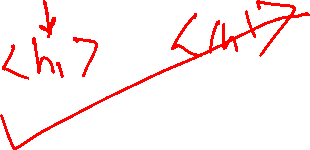 <h1> <h1>